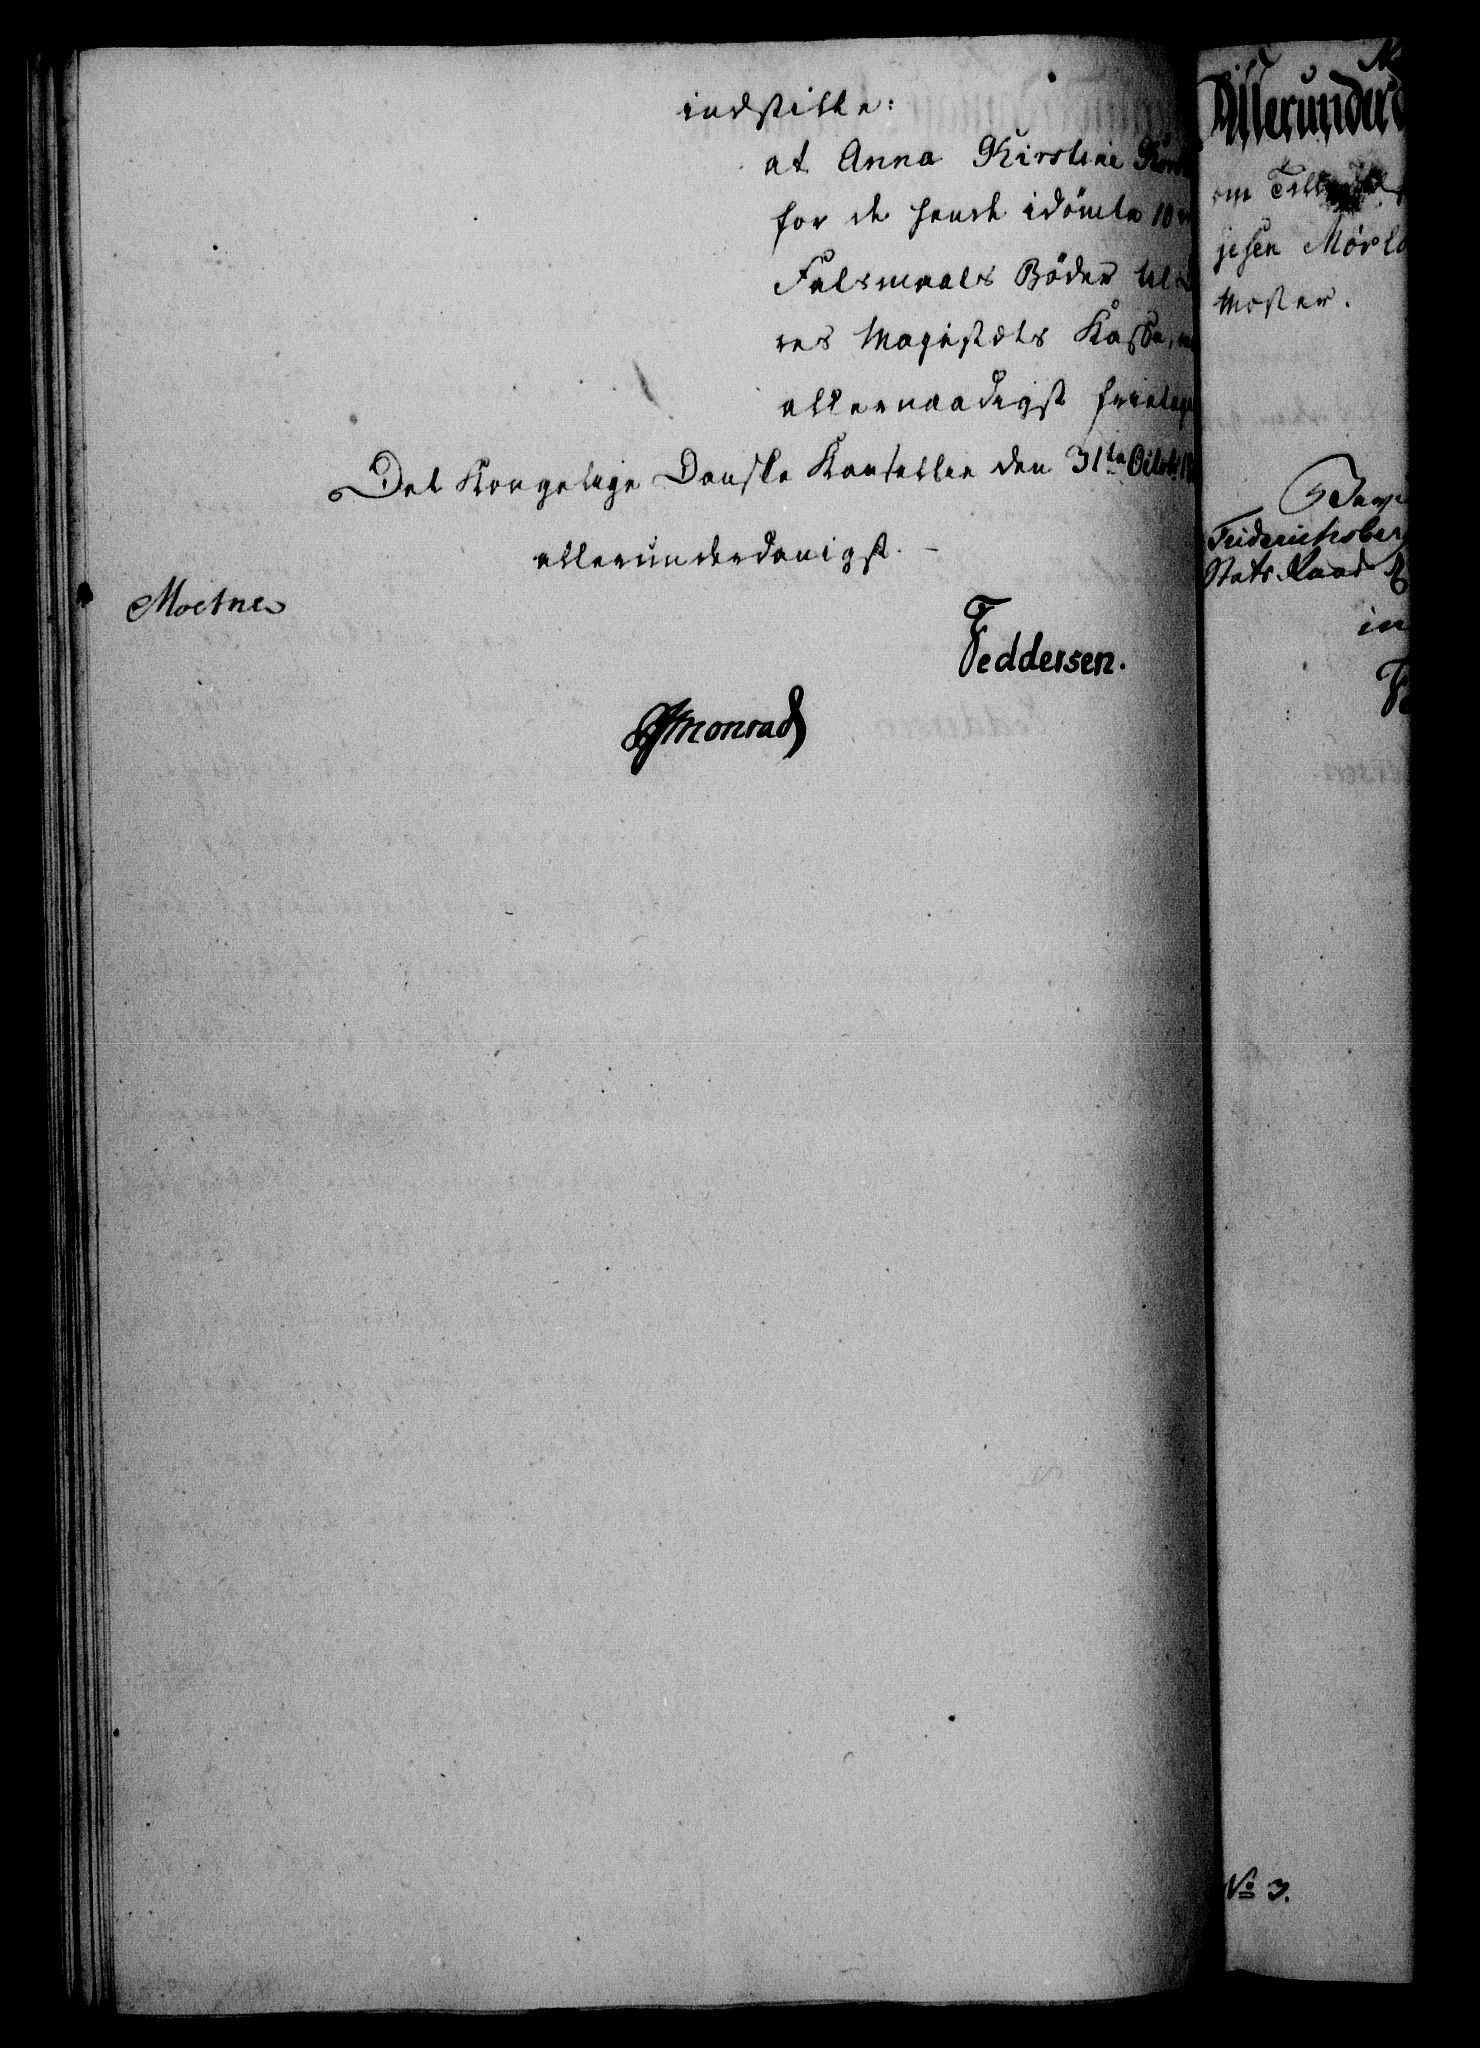 indstille:
at Anna Kirstine
for de hende idömte 10
Falsmaals Böder til
res Magistrats Kasse,
allernaadigst
Det Kongelige Danske Kancellie den 31te Octbr
allerunderdanigst.
Moetne
Feddersen.
Monrad
Allerunder
om
jesen
Moster.
Friderichsber
Stats Raad
in
No 3.